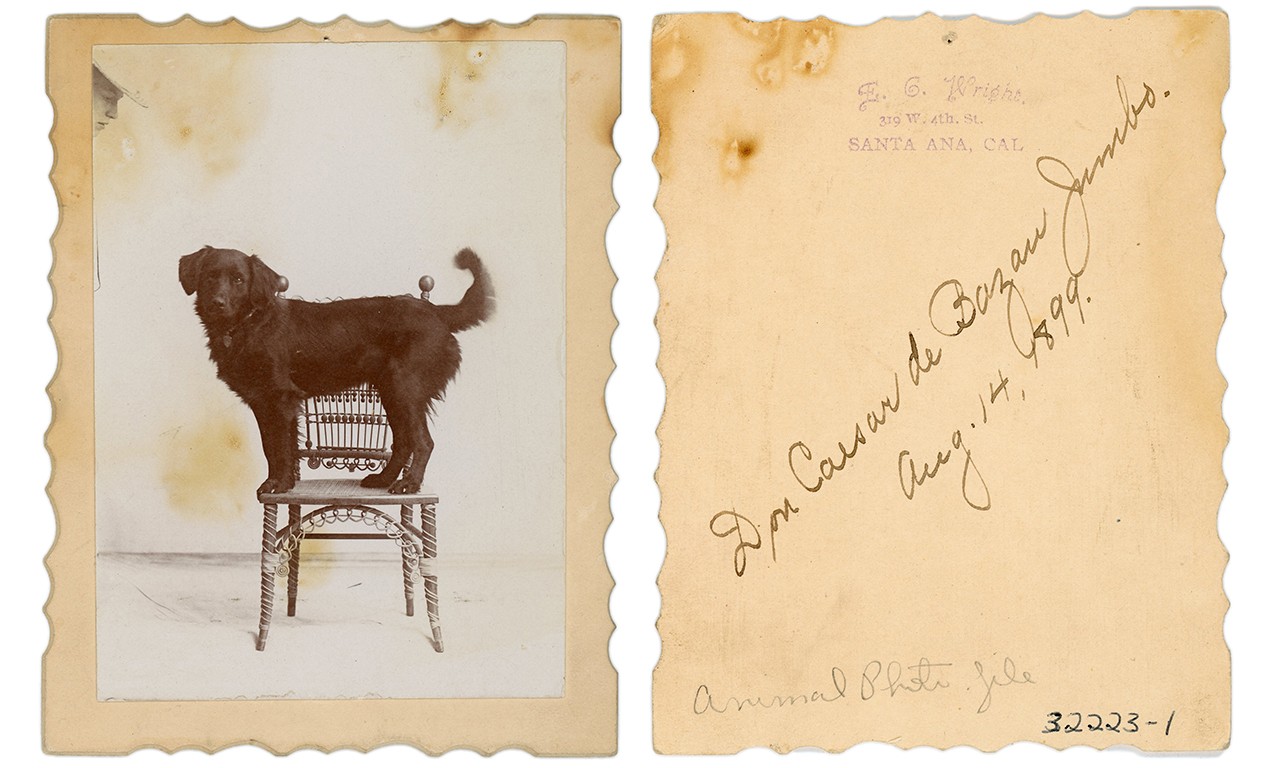 E. C. Wright,
319 W. 4th. St.
SANTA ANA, CAL
Don Caesar de Bazan Jumbo.
Aug. 14, 1899.
Animal Photo. file
32223-1